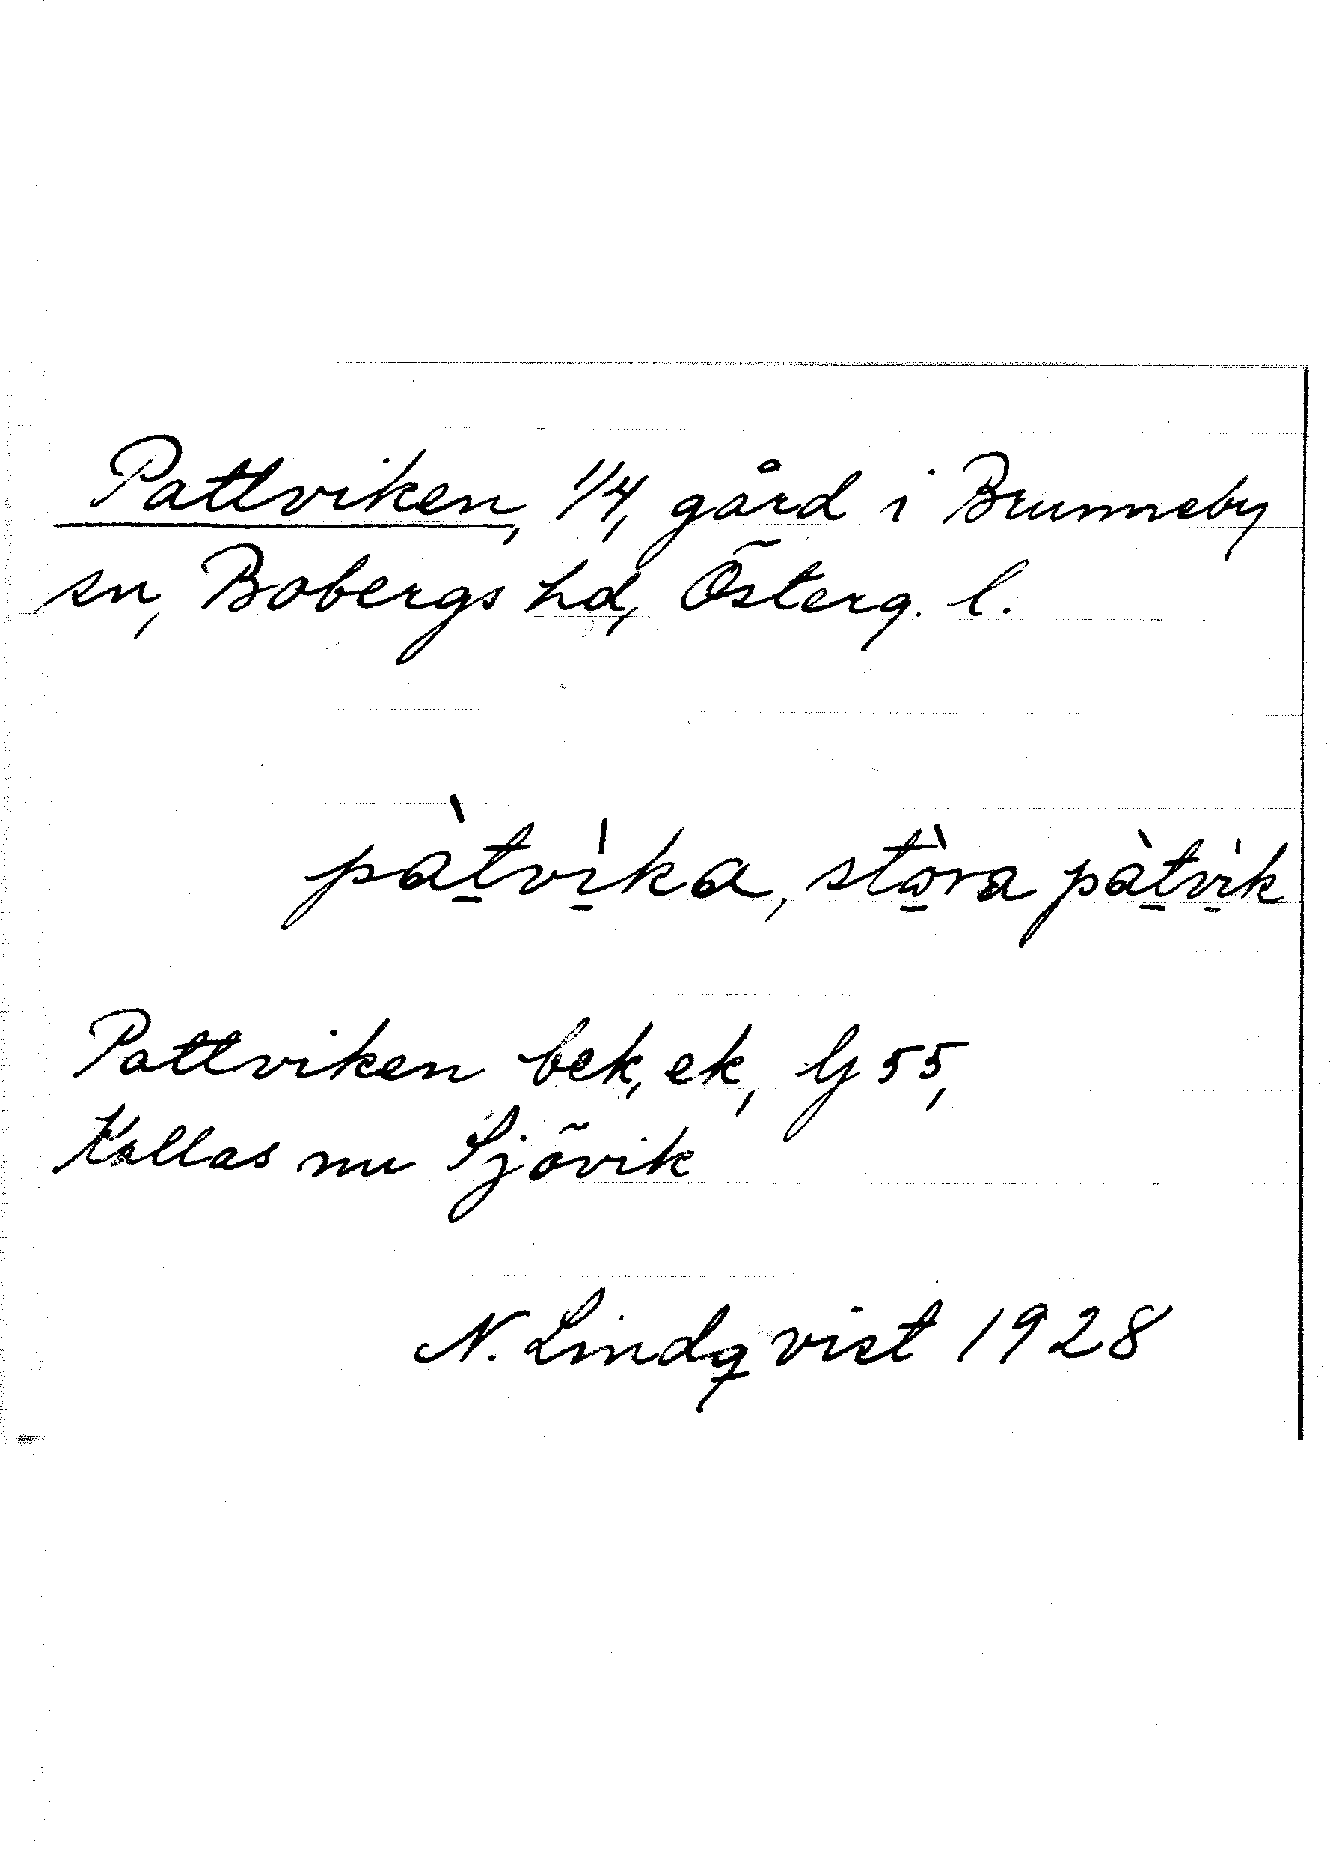 Pattviken, 1/4, gård i Brunneby
sn, Bobergs hd, Österg. l.
pàtvìka, stòra pàtvik
Pattviken bek, ek, Gj 55,
Kallas nu Sjövik
N. Lindqvist 1928